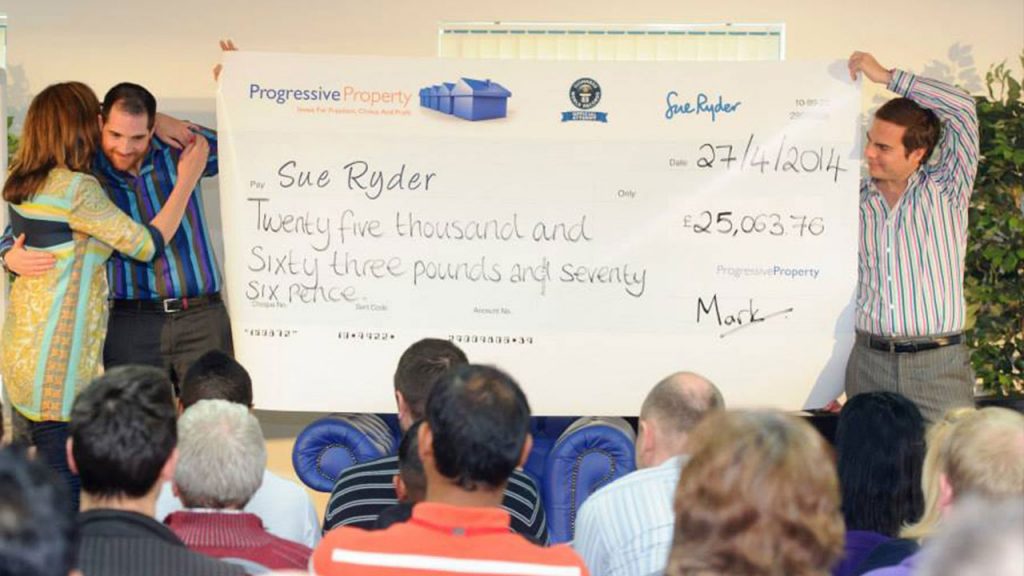 ProgressiveProperty
Invest For Freedom, Choice And Profit
Sue Ryder
Date 27/4/2014
Pay Sue Ryder
Only
Twenty five thousand and
£25,063.76
Sixty three pounds and seventy
six pence.
ProgressiveProperty
Mark
Cheque No. Sort Code Account No.